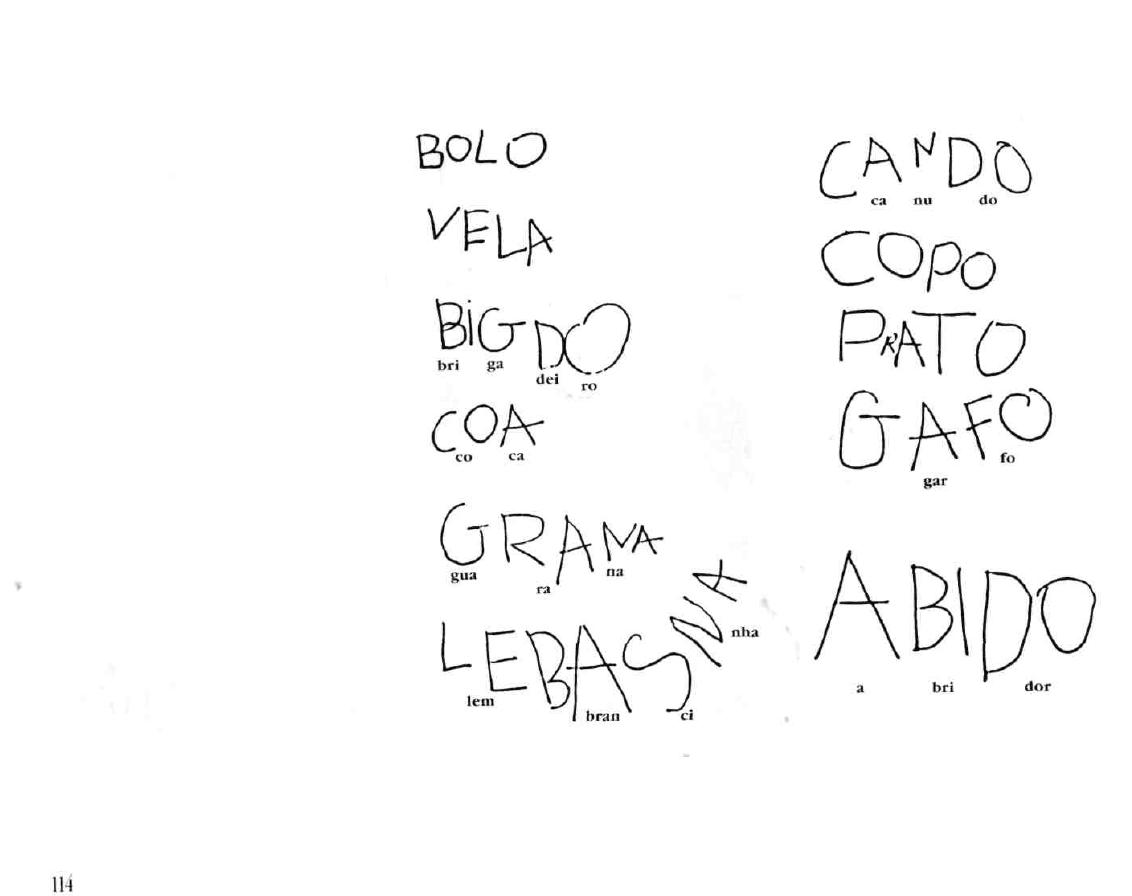 BOLO
VELA
BIGDO
bri ga dei ro
COA
co ca
GRANA
gua ra na
LEBASINA
lem bran ci nha
CANDO
ca nu do
COPO
PRATO
GAFO
gar fo
ABIDO
a bri dor
114